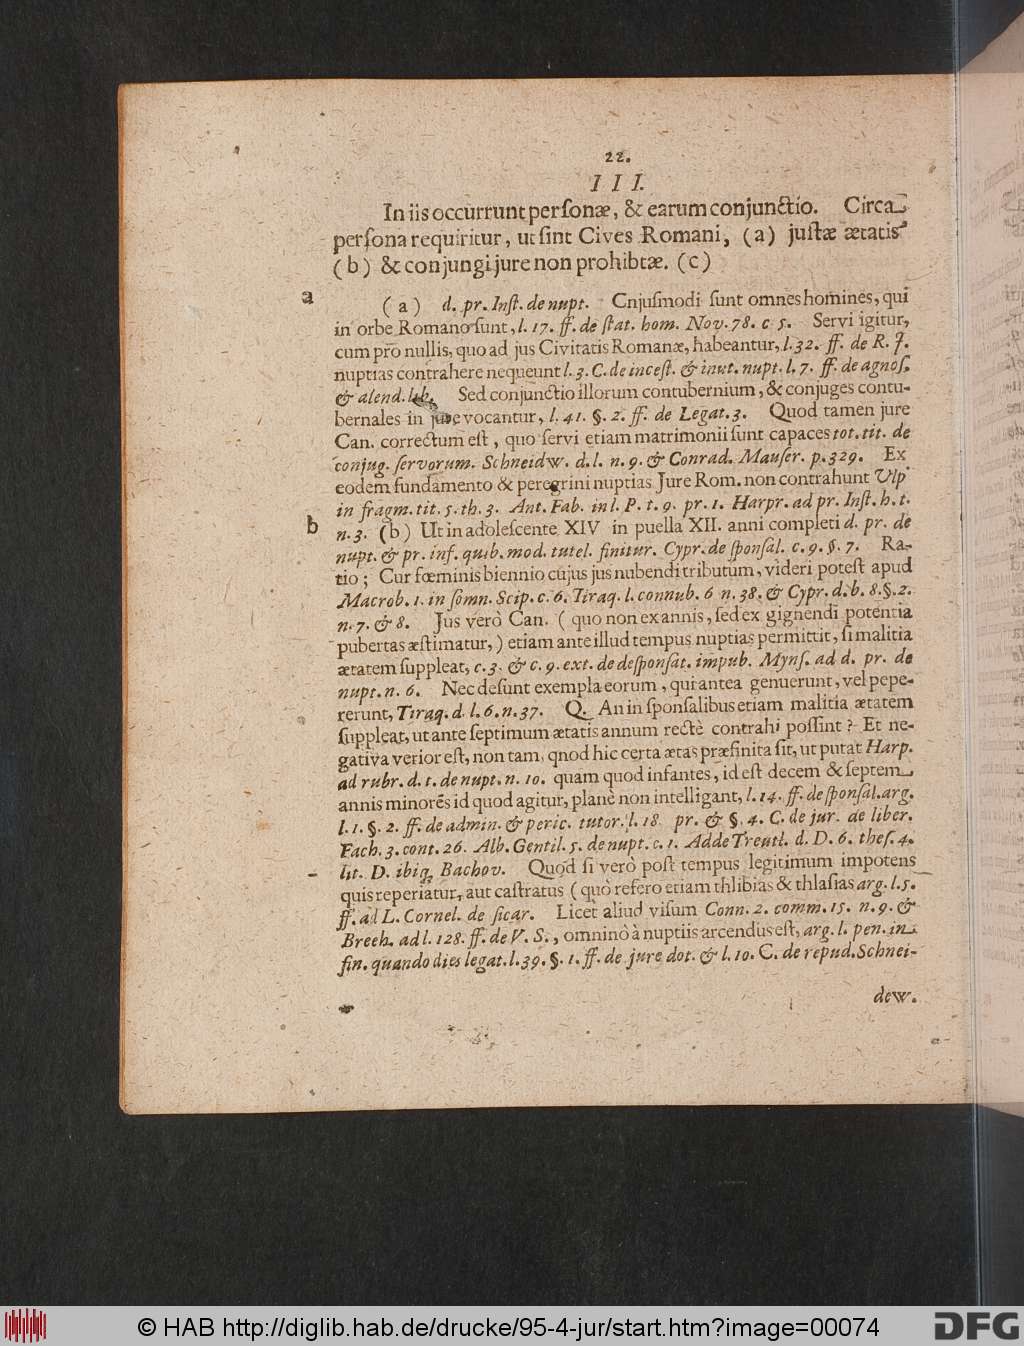 22.
III.
In iis occurrunt personæ, & earum conjunctio. Circa
persona requiritur, ut sint Cives Romani, (a) justæ ætatis
(b) & conjungi jure non prohibtæ. (c)
a (a) d. pr. Inst. de nupt. Cnjusmodi sunt omnes homines, qui
in orbe Romano sunt, l. 17. ff. de stat. hom. Nov. 78. c 5. Servi igitur,
cum pro nullis, quo ad jus Civitatis Romanæ, habeantur, l. 32. ff. de R. J.
nuptias contrahere nequeunt l. 3. C. de incest. & inut. nupt. l. 7. ff. de agnos.
& alend. lib. Sed conjunctio illorum contubernium, & conjuges contu-
bernales in jure vocantur, l. 41. §. 2. ff. de Legat. 3. Quod tamen jure
Can. correctum est, quo servi etiam matrimonii sunt capaces tot. tit. de
conjug. servorum. Schneidw. d. l. n. 9. & Conrad. Mauser. p. 329. Ex
eodem fundamento & peregrini nuptias Jure Rom. non contrahunt Ulp
in fragm. tit. 5. th. 3. Ant. Fab. in l. P. t. 9. pr. 1. Harpr. ad pr. Inst. h. t.
b n. 3. (b) Ut in adolescente XIV in puella XII. anni completi d. pr. de
nupt. & pr. inf. quib. mod. tutel. finitur. Cypr. de sponsal. c. 9. §. 7. Ra-
tio; Cur fœminis biennio cujus jus nubendi tributum, videri potest apud
Macrob. 1. in somn. Scip. c. 6. Tiraq. l. connub. 6 n. 38. & Cypr. d. b. 8. §. 2.
n. 7. & 8. Jus verò Can. ( quo non ex annis, sed ex gignendi potentia
pubertas æstimatur, ) etiam ante illud tempus nuptias permittit, si malitia
ætatem suppleat, c. 3. & c. 9. ext. de desponsat. impub. Myns. ad d. pr. de
nupt. n. 6. Nec desunt exempla eorum, qui antea genuerunt, vel pepe-
rerunt, Tiraq. d. l. 6. n. 37. Q. An in sponsalibus etiam malitia ætatem
suppleat, ut ante septimum ætatis annum rectè contrahi possint? Et ne-
gativa verior est, non tam, qnod hic certa ætas præfinita sit, ut putat Harp.
ad rubr. d. t. de nupt. n. 10. quam quod infantes, id est decem & septem
annis minores id quod agitur, planè non intelligant, l. 14. ff. de sponsal. arg.
l. 1. §. 2. ff. de admin. & peric. tutor. l. 18 pr. & §. 4. C. de jur. de liber.
Fach. 3. cont. 26. Alb. Gentil. 5. de nupt. c. 1. Adde Treutl. d. D. 6. thes. 4.
lit. D. ibiq; Bachov. Quod si verò post tempus legitimum impotens
quis reperiatur, aut castratus ( quò refero etiam thlibias & thlasias arg. l. 5.
ff. ad L. Cornel. de sicar. Licet aliud visum Conn. 2. comm. 15. n. 9. &
Breeh. ad l. 128. ff. de V. S., omninò à nuptiis arcendus est, arg. l. pen. in
fin. quando dies legat. l. 39. §. 1. ff. de jure dot. & l. 10. C. de repud. Schnei-
dew.
© HAB http://diglib.hab.de/drucke/95-4-jur/start.htm?image=00074
DFG